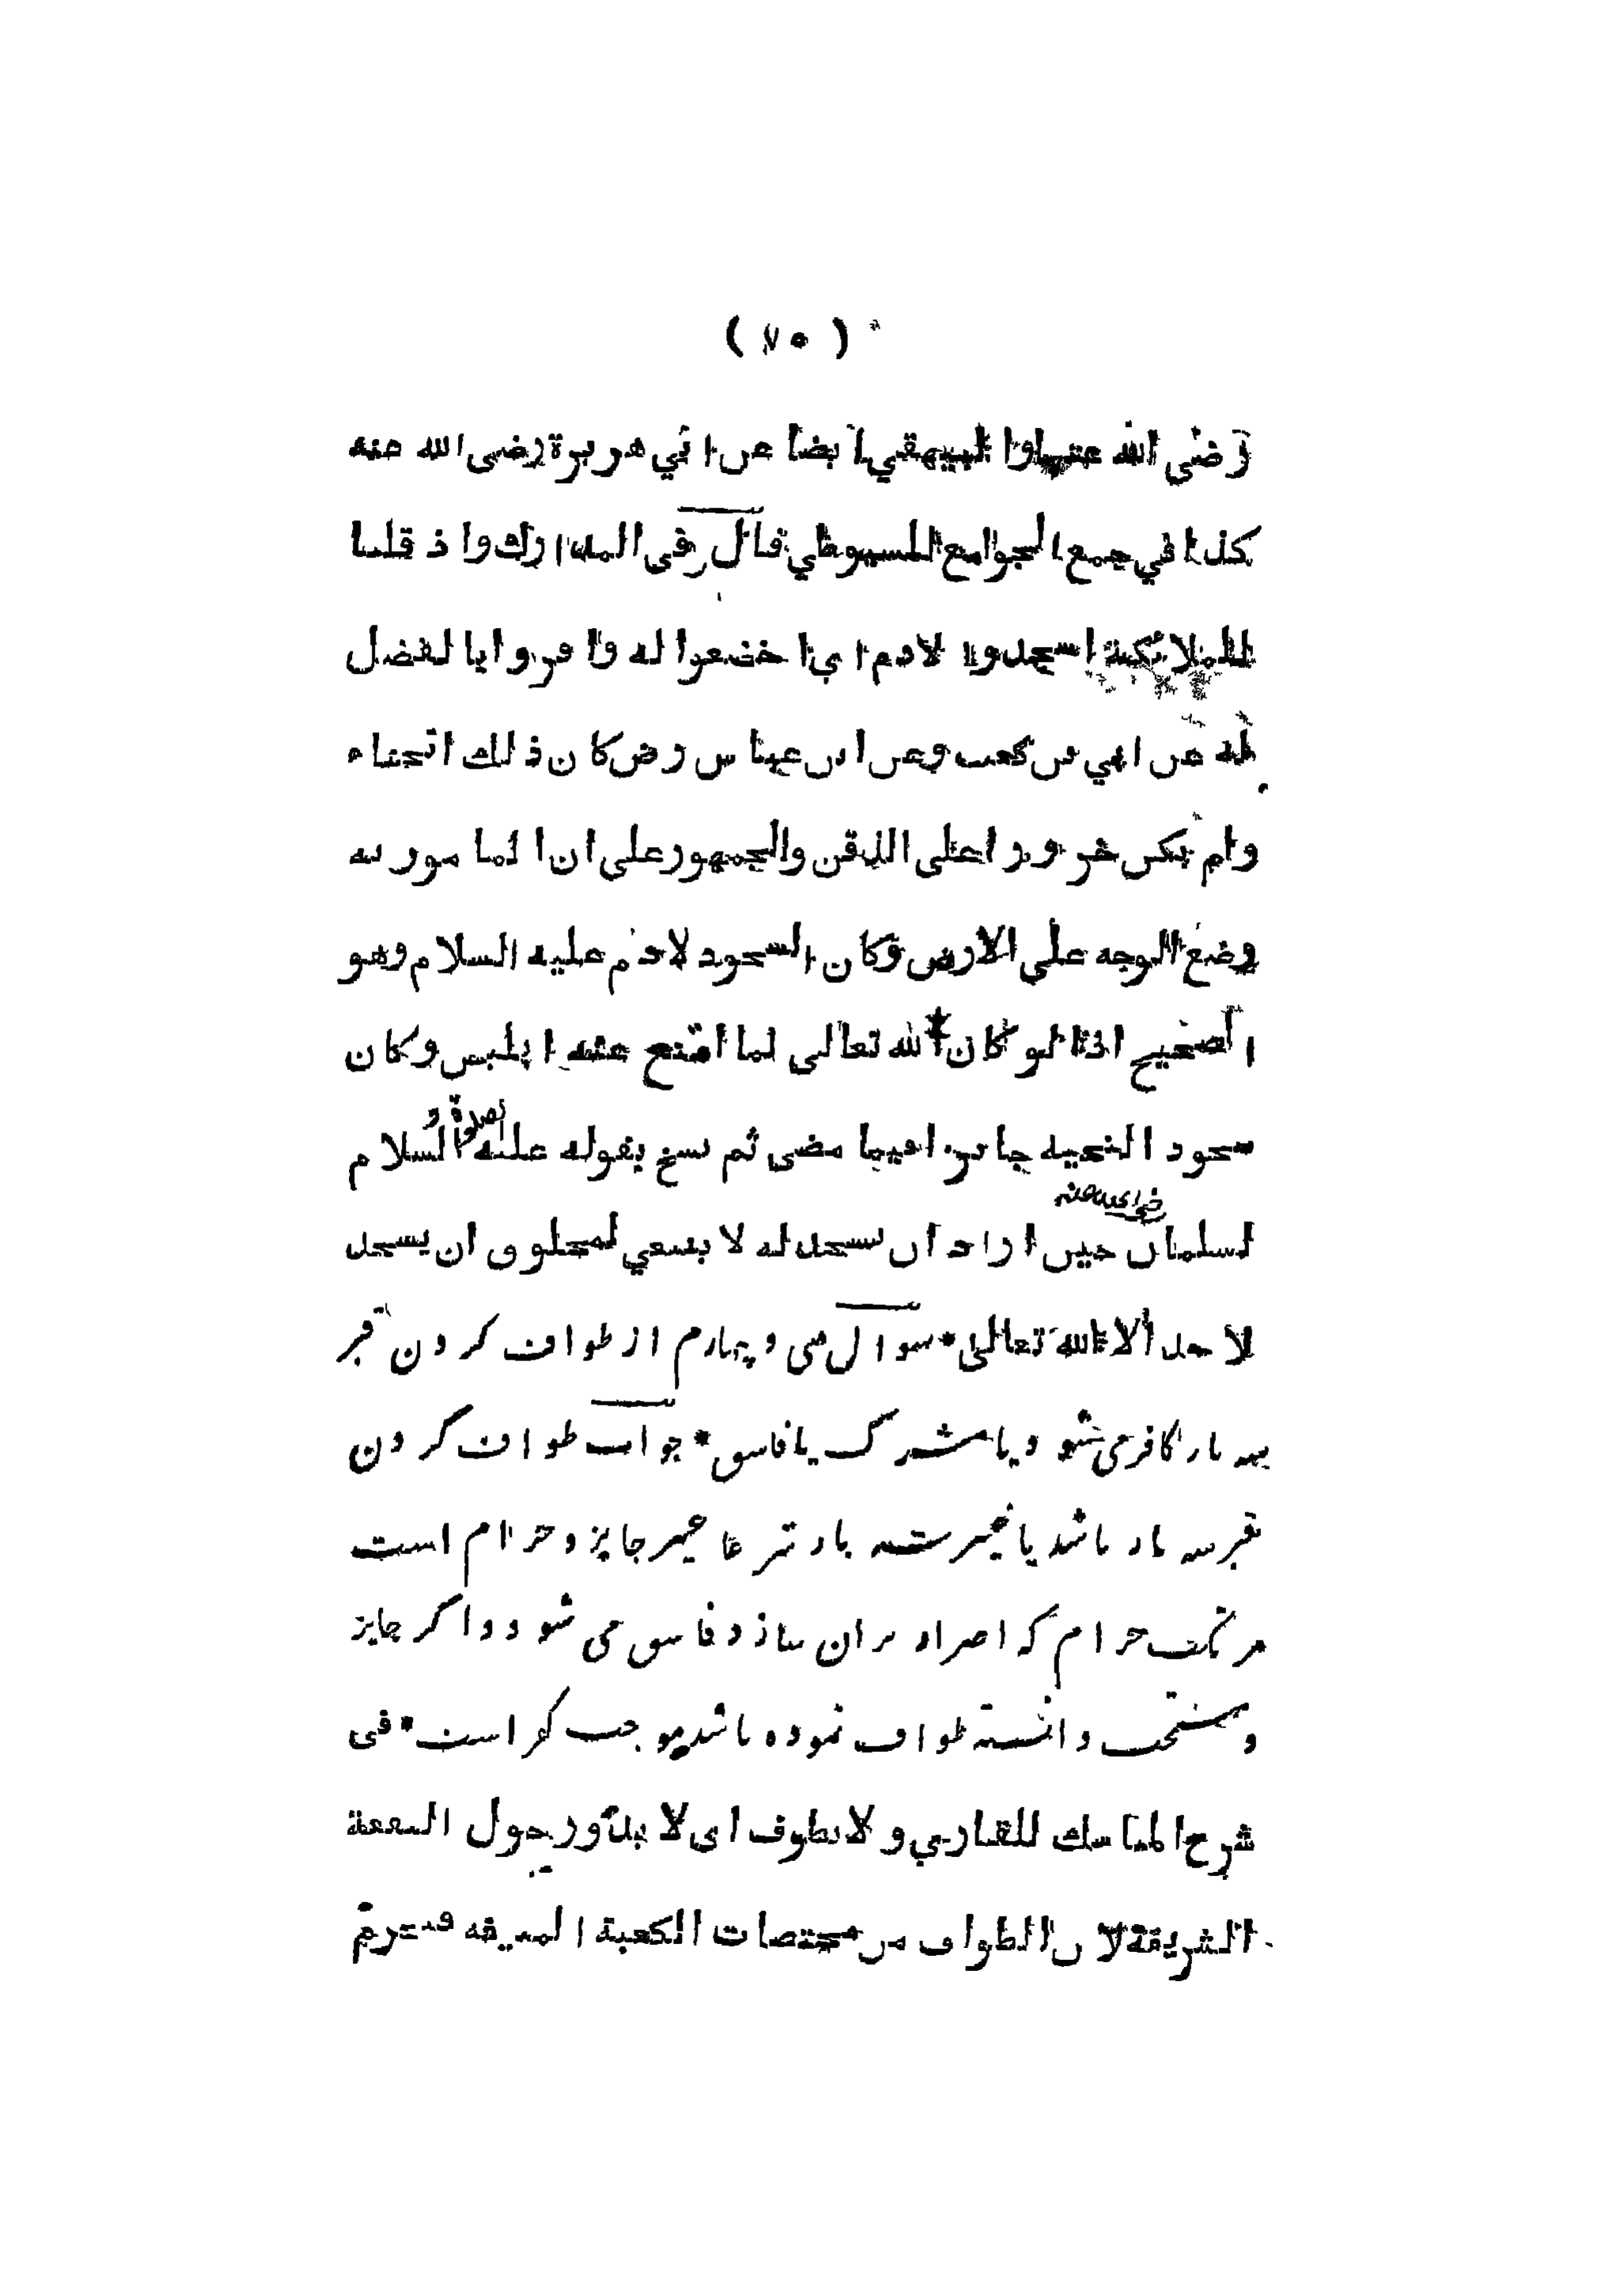 ( ٧٥ )
رضى الله عنها والبيهقي ايضا عن ابي هريرة رضى الله عنه
كذا في جمع الجوامع للسيوطي قال فى المدارك واذ قلنا
للملائكة اسجدوا لادم اي اخضعوا له واقروا بالفضل
له عن ابي بن كعب وعن ابن عباس رض كان ذلك انحناء
ولم يكن خرورا على الذقن والجمهور على ان المامور به
وضع الوجه على الارض وكان السجود لادم عليه السلام وهو
الصحيح اذ لو كان لله تعالى لما امتنع عنه ابليس وكان
سجود التحية جايزا فيما مضى ثم نسخ بقوله عليه الصلوة و السلام
لسلمان رضي الله عنه حين اراد ان يسجد له لا ينبغي لمخلوق ان يسجد
لاحد الا لله تعالى * سوال سى و چهارم از طواف كردن قبر
سه بار كافر مى شود يا مشرك يا فاسق * جواب طواف كردن
قبر سه بار باشد يا غير سه بار شرعا غير جايز و حرام است
مرتكب حرام كه اصرار بران سازد فاسق مى شود و اگر جايز
و مستحب دانسته طواف نموده باشد موجب كفر است * فى
شرح المناسك للقاري ولا يطوف اى لا يدور حول البقعة
الشريفة لان الطواف من مختصات الكعبة المنيفه فيحرم